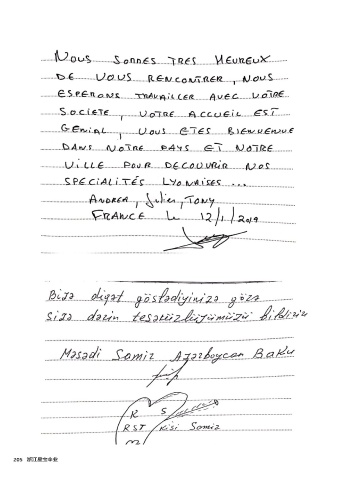 NOUS SOMMES TRES HEUREUX
DE VOUS RENCONTRER, NOUS
ESPERONS TRAVAILLER AVEC VOTRE
SOCIETE, VOTRE ACCUEIL EST
GENIAL, VOUS ETES BIENVENUE
DANS NOTRE PAYS ET NOTRE
VILLE POUR DECOUVRIR NOS
SPECIALITÉS LYONAISES ...
ANDREA, Julien, TONY
FRANCE le 12/1/2019
Bizə diqət göstədiyinizə görə
sizə dərin təşəkkürümüzü bildiririk
Məşədi Samir Azərbaycan BAKU
R S
RST Kişi Samir
205 浙江星宝伞业